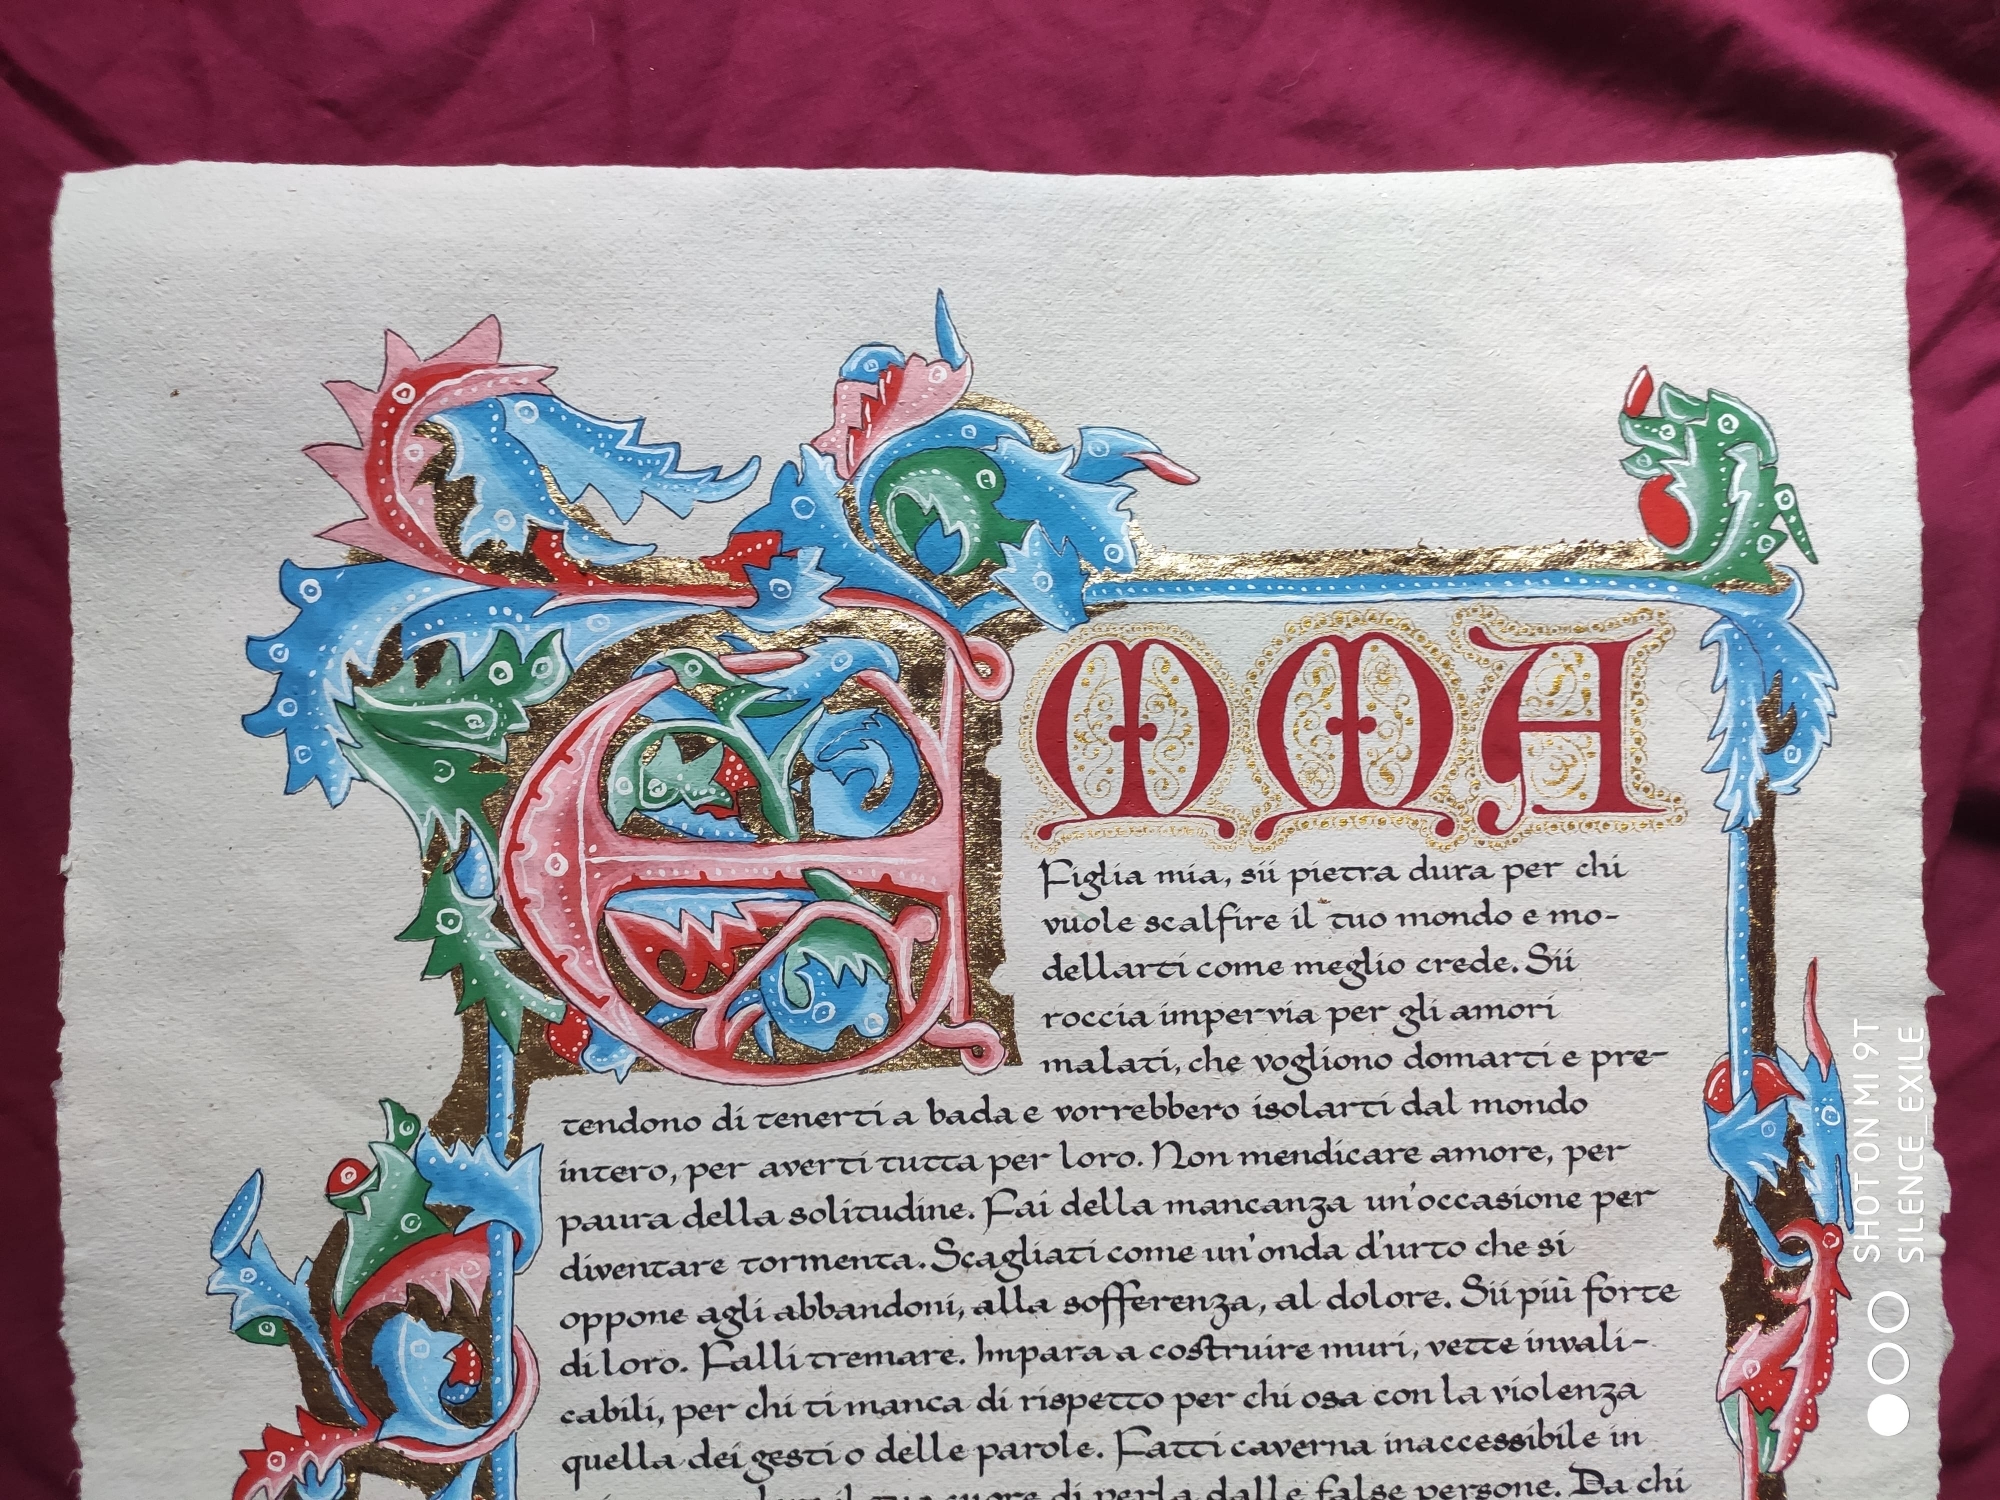 EMMA
Figlia mia, sii pietra dura per chi
vuole scalfire il tuo mondo e mo-
dellarti come meglio crede. Sii
roccia impervia per gli amori
malati, che vogliono domarti e pre-
tendono di tenerti a bada e vorrebbero isolarti dal mondo
intero, per averti tutta per loro. Non mendicare amore, per
paura della solitudine. Fai della mancanza un'occasione per
diventare tormenta. Scagliati come un'onda d'urto che si
oppone agli abbandoni, alla sofferenza, al dolore. Sii più forte
di loro. Falli tremare. Impara a costruire muri, vette invali-
cabili, per chi ti manca di rispetto per chi osa con la violenza
quella dei gesti o delle parole. Fatti caverna inaccessibile in
il tuo cuore di perla dalle false persone. Da chi
SHOT ON MI 9T
SILENCE_EXILE